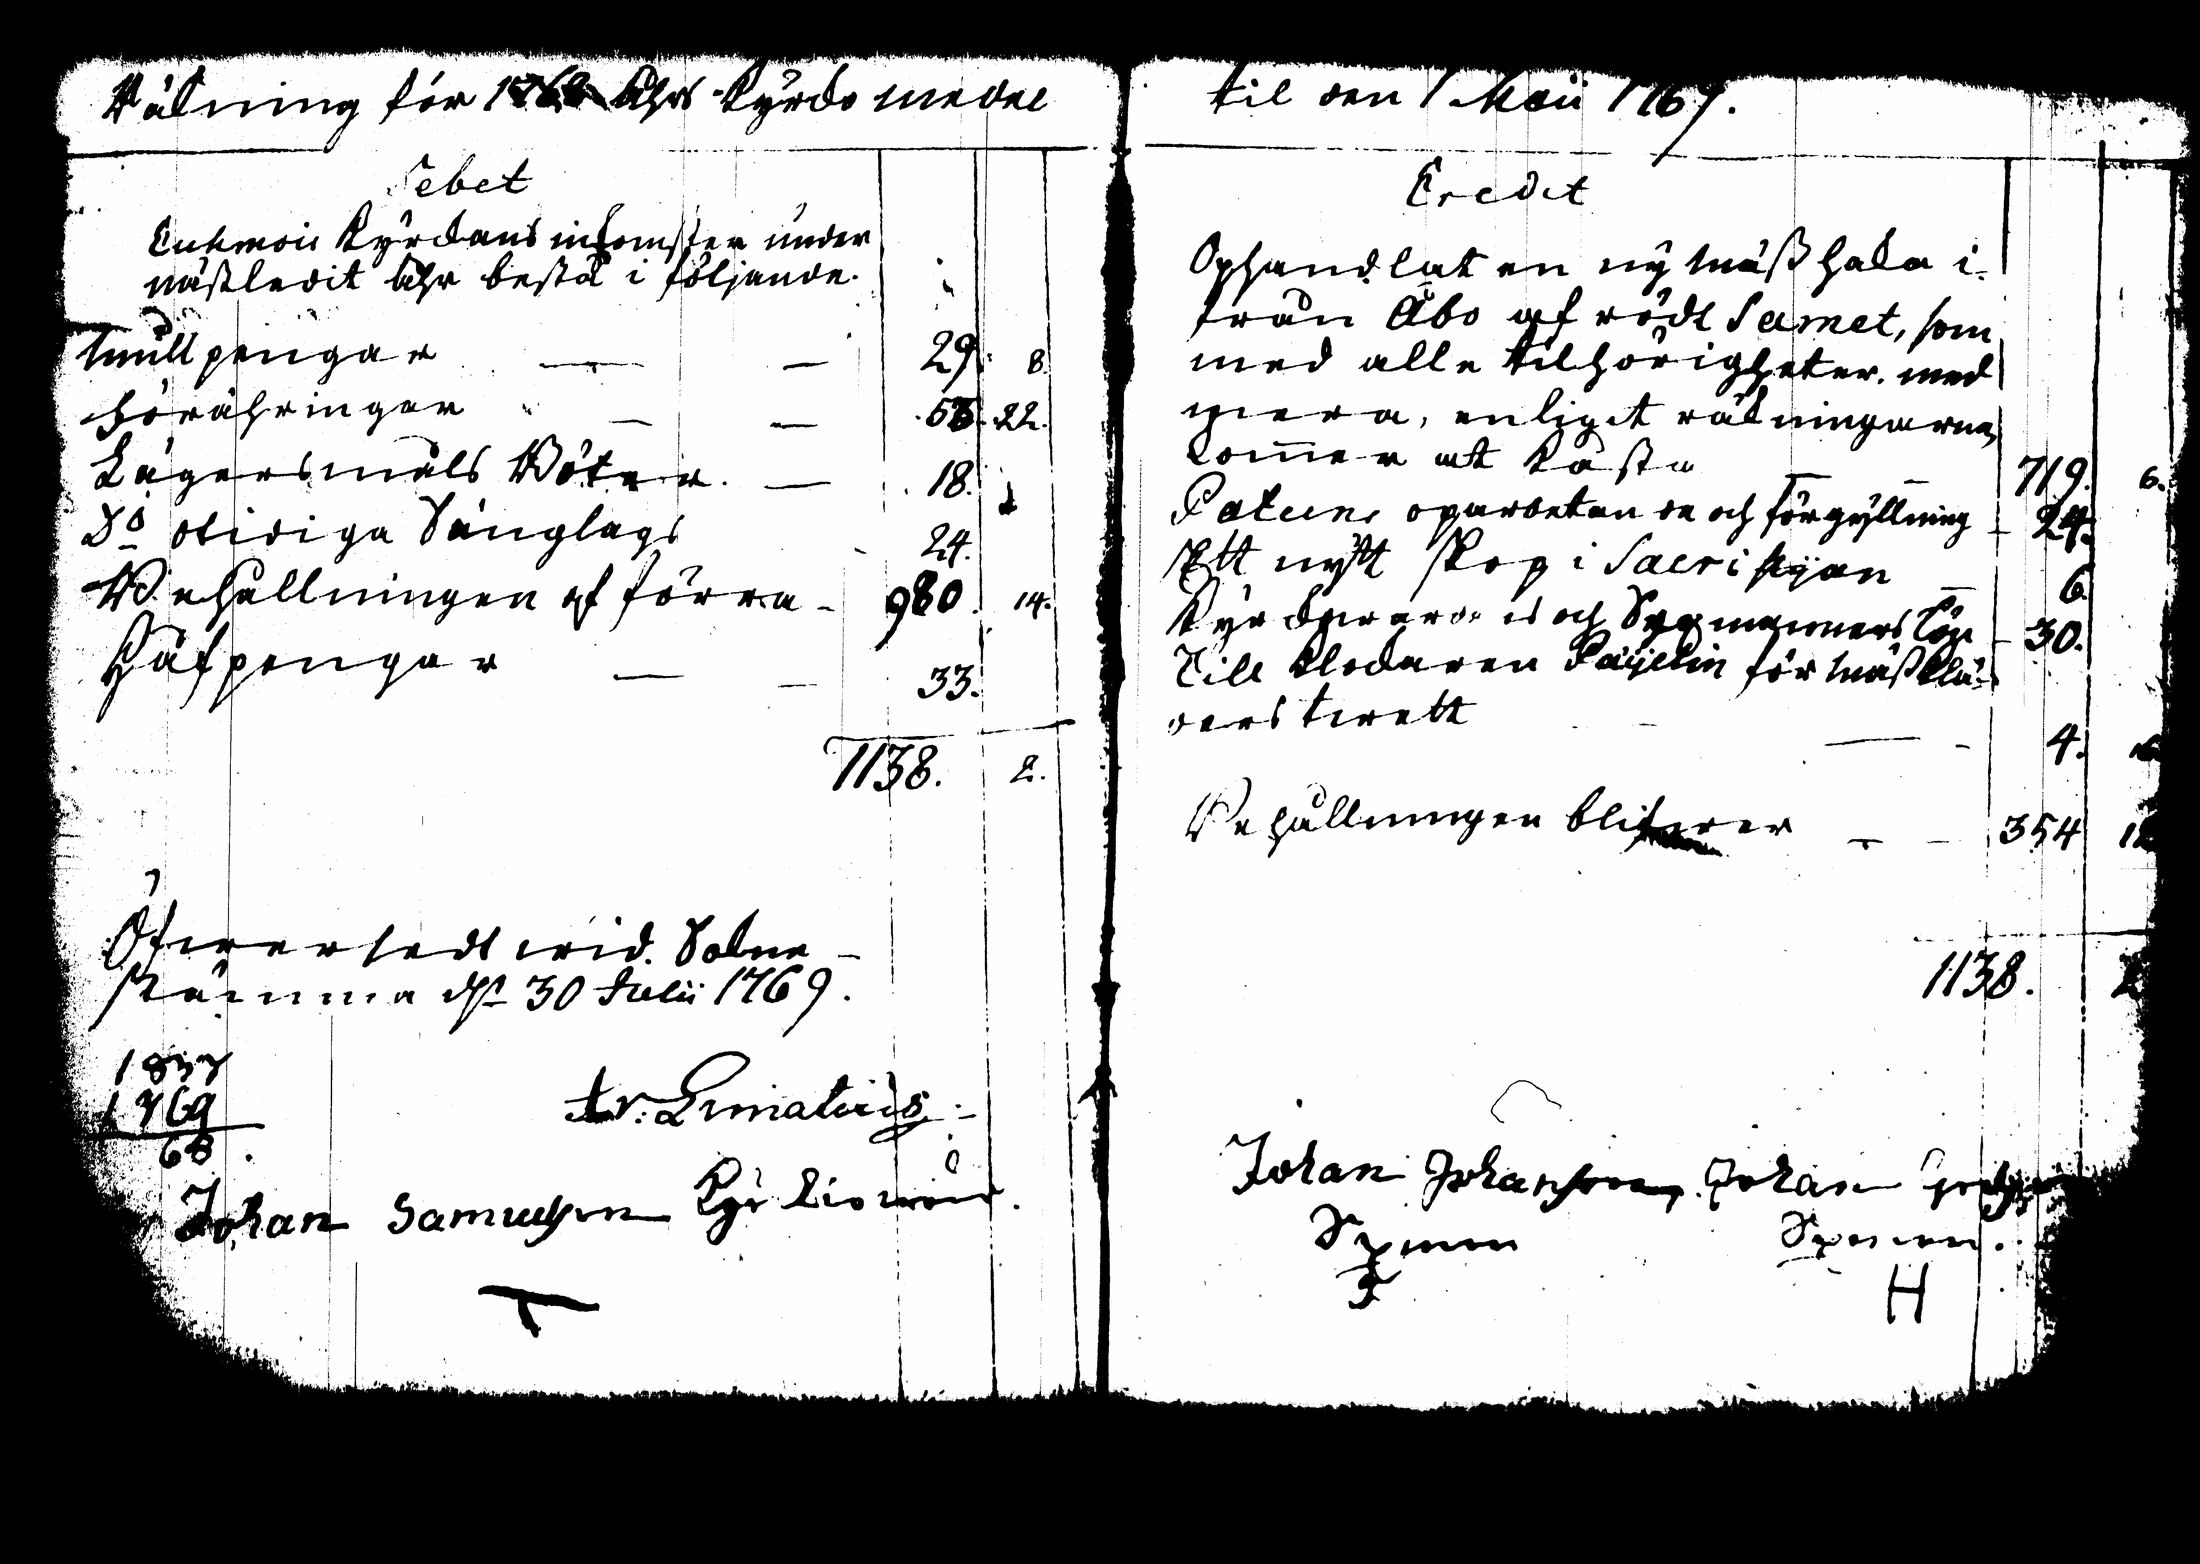 Räkning för 1768 åhrs kyrcko medel
Debet
Enkimois kyrckans inkomster under
nästledit åhr bestå i följande.
Mullpengar — — 29. 8.
Förähringar — — 53. 22.
Lägersmåls Böter — 18.
Do otidiga Sänglags 24.
Behållningen af förra 980. 14.
Håfpengar — — 33.
1138. 2.
Öfversedt wid Sokne-
Stämma dn 30 Julii 1769.
1837
1769
68.
Johan Samuelsson Kyrckiowärd.
T
til den 1 Maii 1769.
Credit
Ophandlat en ny Mässhaka i-
från Åbo af rödt Samet, som
med alla tilhörigheter med
mera, enligit räkningarna,
kommer at kosta — — 719. 6.
Patens oparbetande och förgyllning 24.
Ett nytt skåp i Sacristijan — 6.
Kyrckiwärdens och Sexmannens lön 30.
Till klockaren Paijelin för Mässklä-
ders twätt — 4.
Behållningen blifwer — — 354
1138. 2
Johan Johansson, Johan
Sexman Sexman.
H